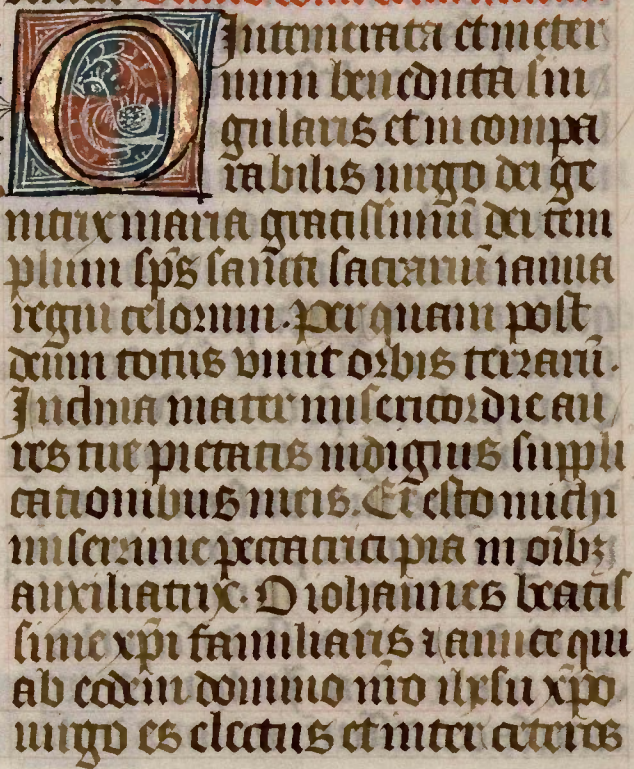 O Intemerata et in eter
num benedicta sin
gularis et incompa
rabilis uirgo dei ge
nitrix maria gratissimū dei tem
plum sp̄s sancti sacrariū ianua
regni celorum. Per quam post
deum totus viuit orbis terrarū.
Inclina mater misericordie au
res tue pietatis indignis suppli
cationibus meis. Et esto michi
miserrime peccatrici pia in oībꝫ
auxiliatrix. O iohannes beatis
sime xp̄i familiaris ⁊ amice qui
ab eodem domino nr̄o ihesu xp̄o
uirgo es electus et inter ceteros